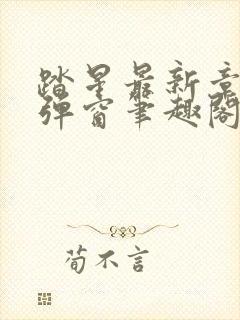 踏星最新章
弹窗笔趣阁
荀不言